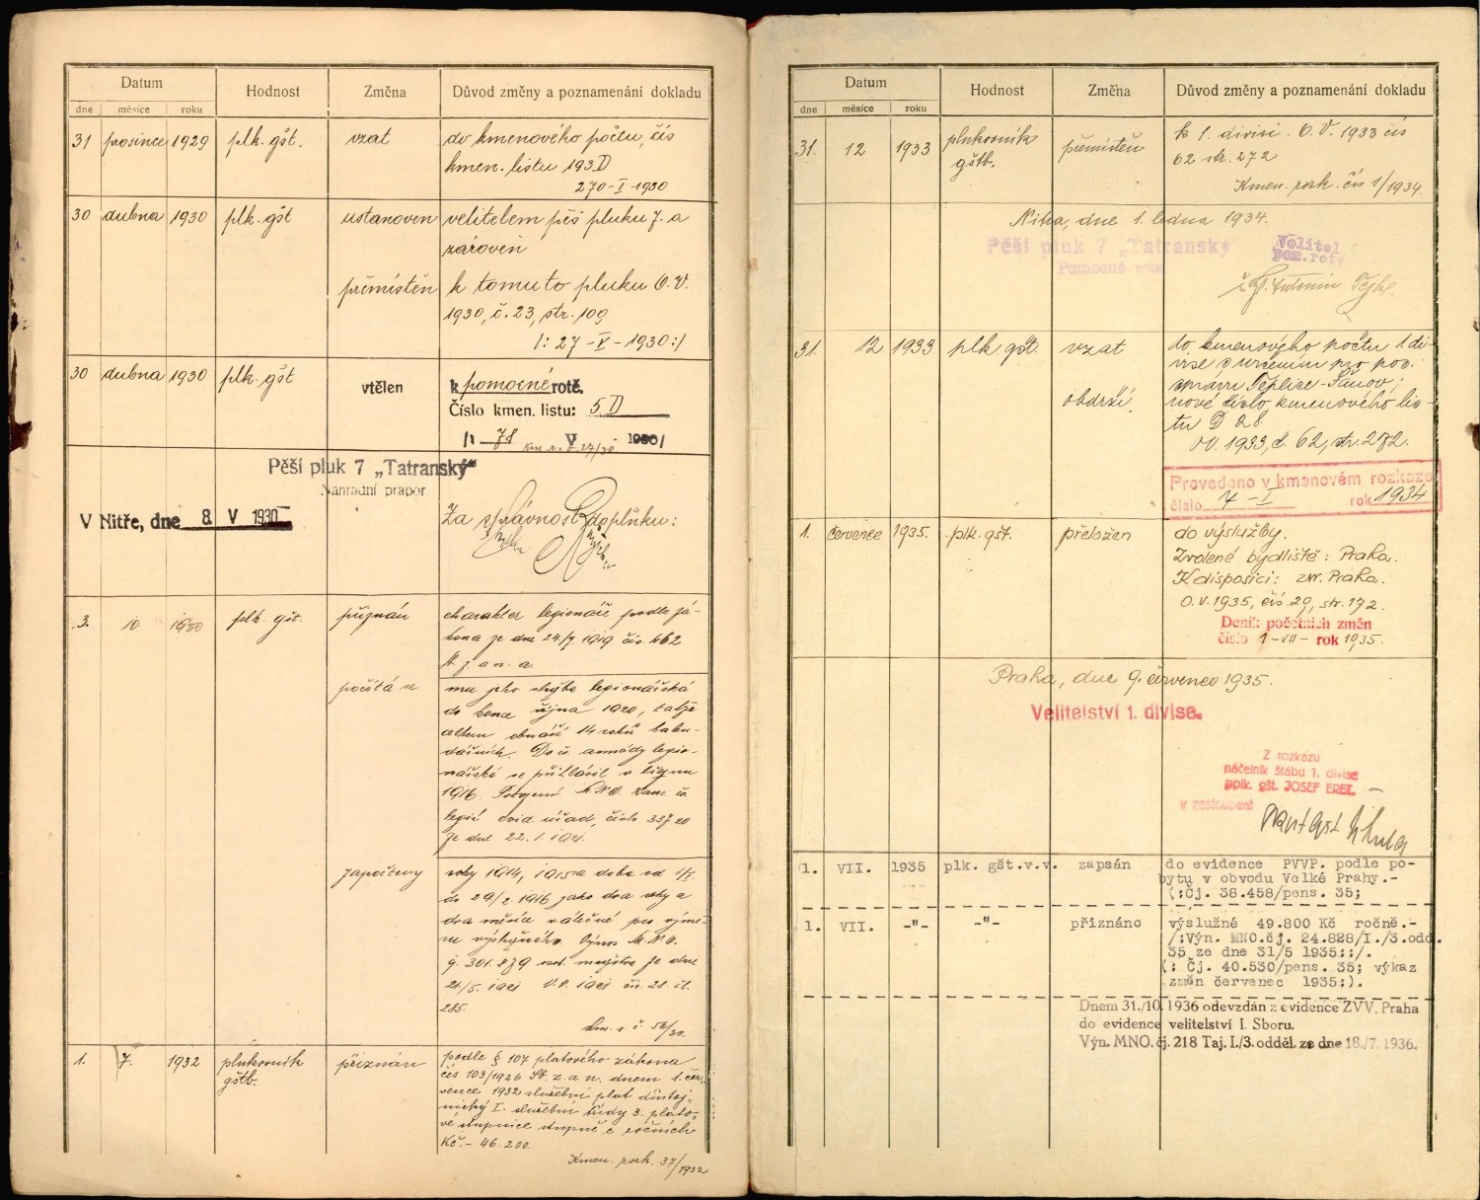 Datum Hodnost Změna Důvod změny a poznamenání dokladu
dne měsíce roku
31 prosince 1929 plk. gšt. vzat do kmenového počtu, čís
kmen. listu 193 D
270-I-1930
30 dubna 1930 plk. gšt ustanoven velitelem pěš pluku 7. a
zároveň
přemístěn k tomuto pluku O.V.
1930, č. 23, str. 109
/: 27-V-1930:/
30 dubna 1930 plk. gšt vtělen k pomocné rotě.
Číslo kmen. listu: 5 D
/: 78 V 1930/
Pěší pluk 7 „Tatranský"
Náhradní prapor
V Nitře, dne 8. V 1930
Za správnost doplňku:
3. 10 1930 plk. gšt. přiznán charakter legionáře podle zá-
kona ze dne 24/7 1919 čís. 462
Sb. z. a n.
počítá se mu jeho služba legionářská
do konce října 1920, takže
celkem obnáší roků kalen-
dářních. Do č. armády legio-
nářské se přihlásil v
1916.
legií úřad, číslo
ze dne 22. 1. 1921.
započteny roky 1914, 1915 a doba od 1/I
do 29/2 1916 jako dva roky a
dva měsíce válečné pro výmě-
ru výslužného. Výnos M.N.O.
ze dne
24/5. 1921
285.
Km. r. č. 56/30.
1. 7. 1932 plukovník přiznán podle § 107 platového zákona
gštb. čís 103/1926 Sb. z. a n. dnem 1. čer-
vence 1932 služební plat důstoj-
nický I. služební třídy 3. plato-
vé stupnice stupně c ročních
Kč.- 46.200.
Kmen. rozk. 37/1932
Datum Hodnost Změna Důvod změny a poznamenání dokladu
dne měsíce roku
31. 12 1933 plukovník přemístěn k 1. divisi. O.V. 1933 čís
gštb. 62 str. 272
Kmen. rozk. čís 1/1934.
Nitra, dne 1. ledna 1934.
Pěší pluk 7 „Tatranský
Pomocná rota
Velitel
pom. roty
31. 12 1933 plk gšt. vzat do kmenového počtu 1 di-
vise s určením pro poz.
správu Teplice-Šanov;
obdrží nové číslo kmenového lis-
tu D 28
OV. 1933, č. 62, str. 272.
Provedeno v kmenovém rozkaze
číslo 4-I rok 1934
1. července 1935. plk. gšt. přeložen do výslužby.
Zvolené bydliště: Praha.
K disposici: zvv. Praha.
O.V. 1935, čís. 29, str. 192.
Deník početních změn
číslo 1-VII- rok 1935.
Praha, dne 9. červenec 1935.
Velitelství 1. divise.
Z rozkazu
náčelník štábu 1. divise
pplk. gšt. JOSEF ERET
v zastoupení
1. VII. 1935 plk. gšt.v.v. zapsán do evidence PVVP. podle po-
bytu v obvodu Velké Prahy.-
(:Čj. 38.458/pens. 35;
1. VII. -"- -"- přiznáno výslužné 49.800 Kč ročně.-
/:Výn. MNO.čj. 24.828/I./3.odd.
35 ze dne 31/5 1935::/.
(: Čj. 40.530/pens. 35; výkaz
změn červenec 1935:).
Dnem 31./10. 1936 odevzdán z evidence ZVV. Praha
do evidence velitelství I. Sboru.
Výn. MNO. čj. 218 Taj. I./3. odděl. ze dne 18./7. 1936.